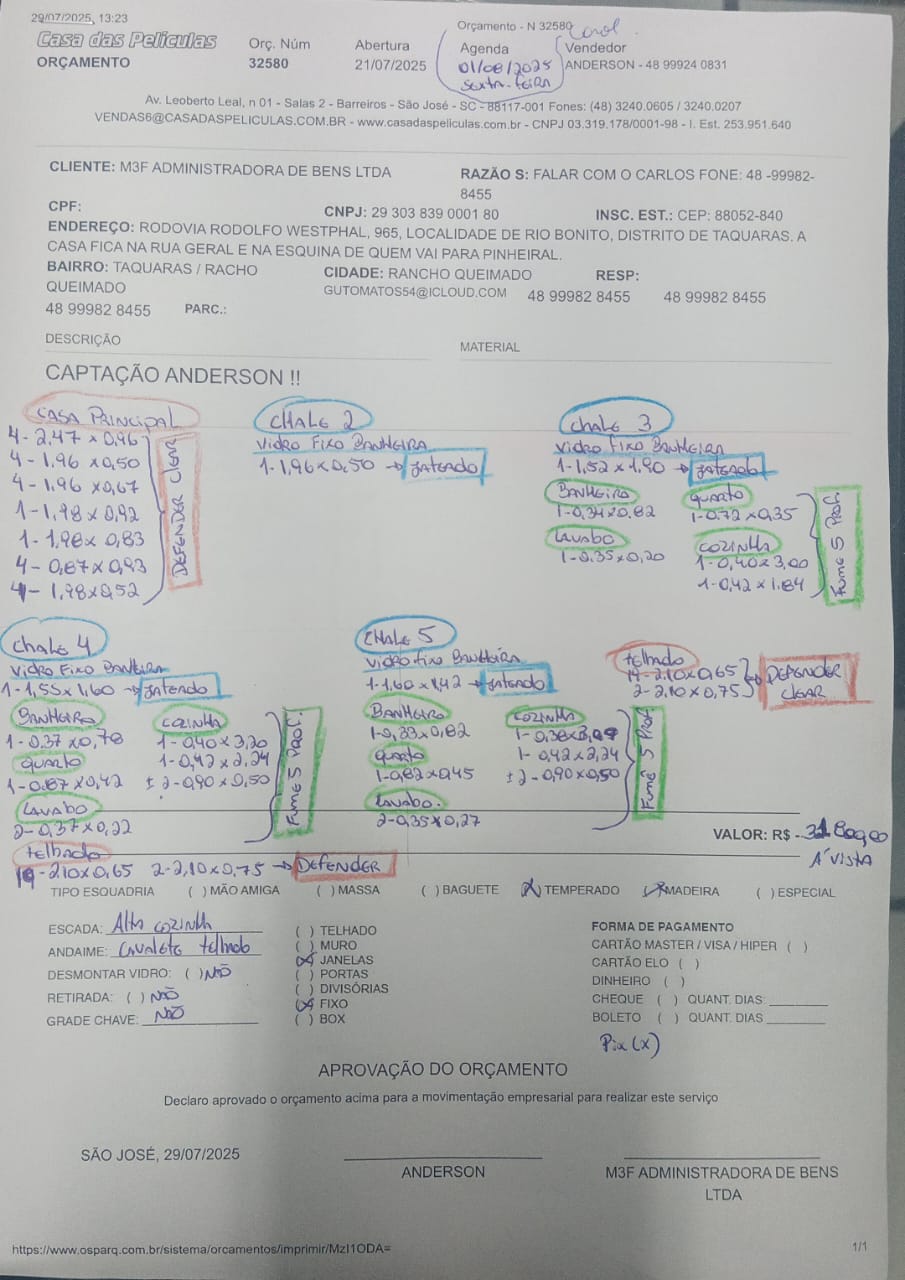 29/07/2025, 13:23
Orçamento - N 32580
Carol
Casa das Películas
ORÇAMENTO
Orç. Núm
32580
Abertura
21/07/2025
Agenda
01/08/2025
sexta-feira
Vendedor
ANDERSON - 48 99924 0831
Av. Leoberto Leal, n 01 - Salas 2 - Barreiros - São José - SC - 88117-001 Fones: (48) 3240.0605 / 3240.0207
VENDAS6@CASADASPELICULAS.COM.BR - www.casadaspeliculas.com.br - CNPJ 03.319.178/0001-98 - I. Est. 253.951.640
CLIENTE: M3F ADMINISTRADORA DE BENS LTDA
RAZÃO S: FALAR COM O CARLOS FONE: 48 -99982-
8455
CPF:
CNPJ: 29 303 839 0001 80
INSC. EST.: CEP: 88052-840
ENDEREÇO: RODOVIA RODOLFO WESTPHAL, 965, LOCALIDADE DE RIO BONITO, DISTRITO DE TAQUARAS. A
CASA FICA NA RUA GERAL E NA ESQUINA DE QUEM VAI PARA PINHEIRAL.
BAIRRO: TAQUARAS / RACHO
QUEIMADO
CIDADE: RANCHO QUEIMADO
RESP:
GUTOMATOS54@ICLOUD.COM
48 99982 8455
48 99982 8455
48 99982 8455
PARC.:
DESCRIÇÃO
MATERIAL
CAPTAÇÃO ANDERSON !!
CASA PRINCIPAL
4 - 2,47 x 0,96
4 - 1,96 x 0,50
4 - 1,96 x 0,67
1 - 1,98 x 0,92
1 - 1,98 x 0,83
4 - 0,87 x 0,93
4 - 1,98 x 0,52
DEFENDER CLEAR
CHALE 2
VIDRO FIXO BANHEIRA
1 - 1,96 x 0,50 → JATEADO
CHALE 3
VIDRO FIXO BANHEIRA
1 - 1,52 x 1,90 → JATEADO
BANHEIRO
1 - 0,34 x 0,82
LAVABO
1 - 0,35 x 0,20
QUARTO
1 - 0,72 x 0,35
COZINHA
1 - 0,40 x 3,00
1 - 0,42 x 1.84
FUME 5 PROF.
CHALE 4
VIDRO FIXO BANHEIRA
1 - 1,55 x 1,60 → JATEADO
BANHEIRO
1 - 0,37 x 0,78
QUARTO
1 - 0.87 x 0,42
LAVABO
2 - 0,37 x 0,22
COZINHA
1 - 0,40 x 3,20
1 - 0,42 x 2,24
± 2 - 0,90 x 0,50
FUME 5 PROF.
telhado
19 - 2.10 x 0,65 2 - 2,10 x 0,75 → DEFENDER
CHALE 5
VIDRO FIXO BANHEIRA
1 - 1,60 x 1,42 → JATEADO
BANHEIRO
1 - 0,33 x 0,82
QUARTO
1 - 0,82 x 0,45
LAVABO.
2 - 0,35 x 0,27
COZINHA
1 - 0,42 x 2,24
± 2 - 0,90 x 0,50
FUME 5 PROF.
telhado
2.10 x 0,65
2 - 2,10 x 0,75
DEFENDER
CLEAR
VALOR: R$
À VISTA
TIPO ESQUADRIA ( ) MÃO AMIGA ( ) MASSA ( ) BAGUETE (X) TEMPERADO (X) MADEIRA ( ) ESPECIAL
ESCADA: Alta cozinha
ANDAIME: Cavalete telhado
DESMONTAR VIDRO: ( ) NÃO
RETIRADA: ( ) NÃO
GRADE CHAVE: NÃO
( ) TELHADO
( ) MURO
(X) JANELAS
( ) PORTAS
( ) DIVISÓRIAS
(X) FIXO
( ) BOX
FORMA DE PAGAMENTO
CARTÃO MASTER / VISA / HIPER ( )
CARTÃO ELO ( )
DINHEIRO ( )
CHEQUE ( ) QUANT. DIAS:
BOLETO ( ) QUANT. DIAS
Pix (X)
APROVAÇÃO DO ORÇAMENTO
Declaro aprovado o orçamento acima para a movimentação empresarial para realizar este serviço
SÃO JOSÉ, 29/07/2025
ANDERSON
M3F ADMINISTRADORA DE BENS
LTDA
https://www.osparq.com.br/sistema/orcamentos/imprimir/MzI1ODA=
1/1